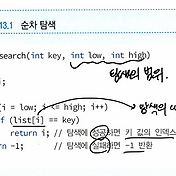 13.1 순차 탐색
search(int key, int low, int high)
탐색의 범위.
i;
(i = low; i <= high; i++)
탐색의
f (list[i] == key)
return i; // 탐색에 성공하면 키 값의 인덱스
n -1; // 탐색에 실패하면 -1 반환